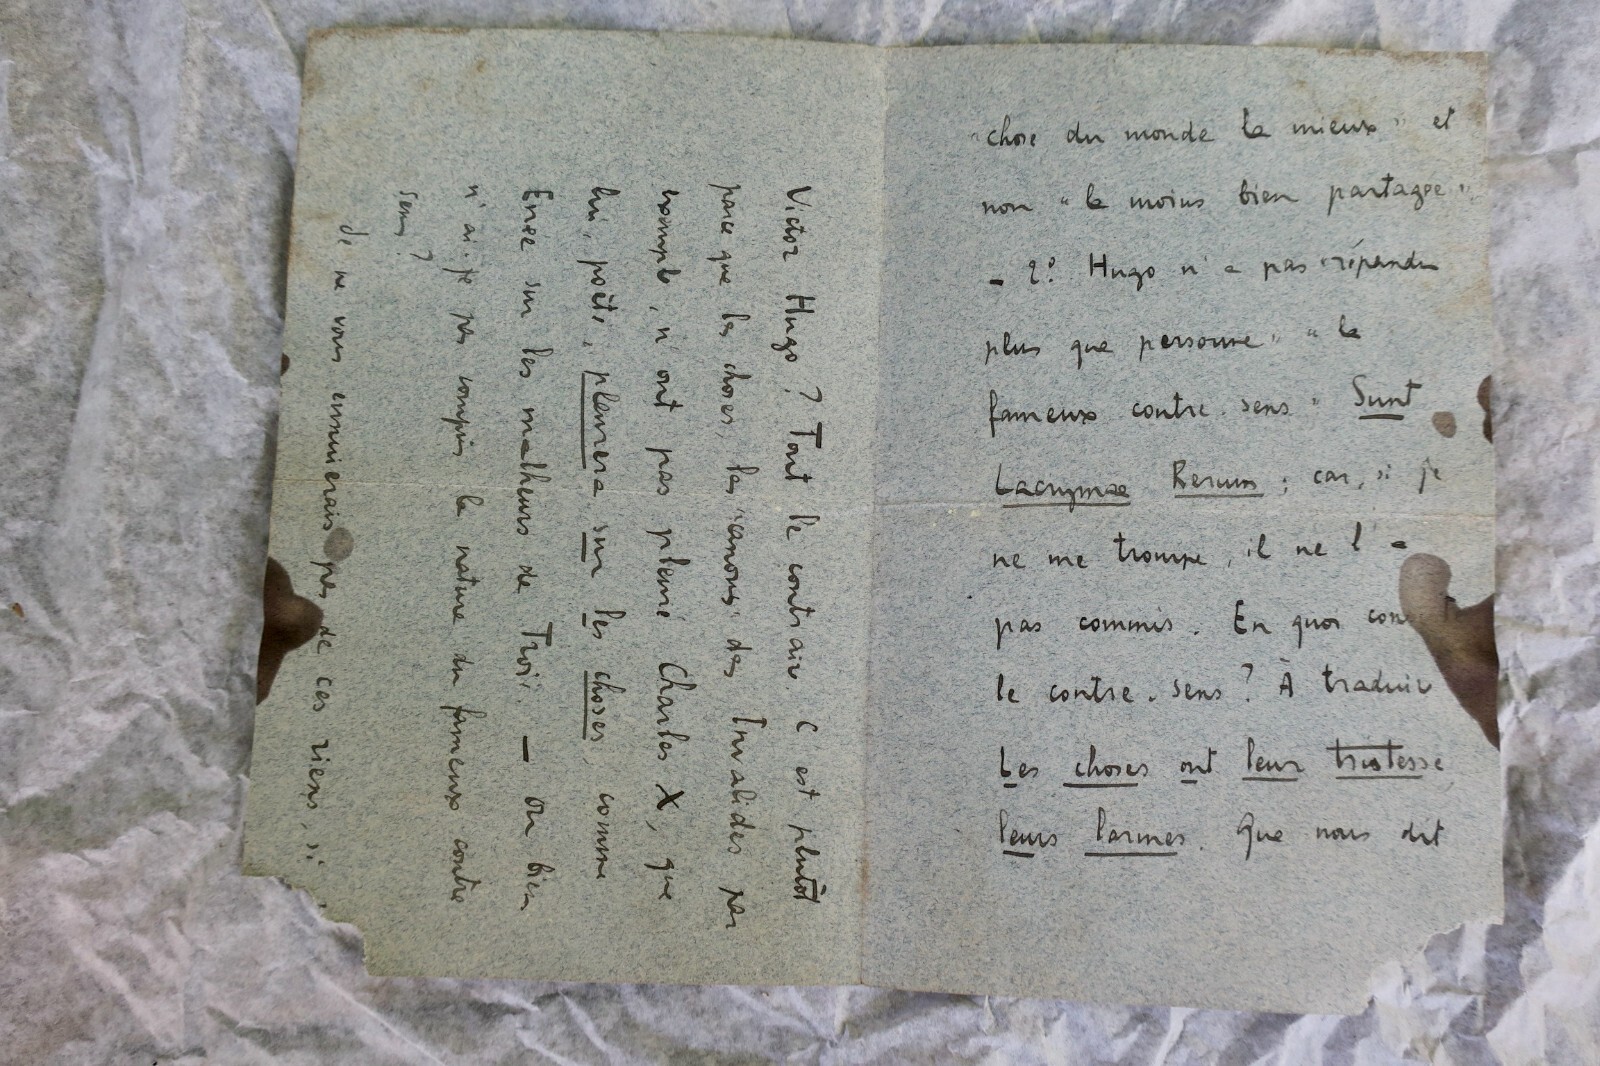 "chose du monde la mieux" et
non "la moins bien partagée".
- 2° Hugo n'a pas "répandu
plus que personne" "le
fameux contre-sens" Sunt
Lacrymae Rerum ; car, si je
ne me trompe, il ne l'a
pas commis. En quoi
le contre-sens ? À traduire
Les choses ont leur tristesse,
leurs larmes. Que nous dit
Victor Hugo ? Tout le contraire. C'est plutôt
parce que les choses, les "canons" des Invalides par
exemple, n'ont pas pleuré Charles X, que
lui, poète, pleurera sur les choses, comme
Enée sur les malheurs de Troie. — Ou bien
n'ai-je pas compris la nature du fameux contre
sens ?
Je ne vous ennuierais pas de ces riens, si